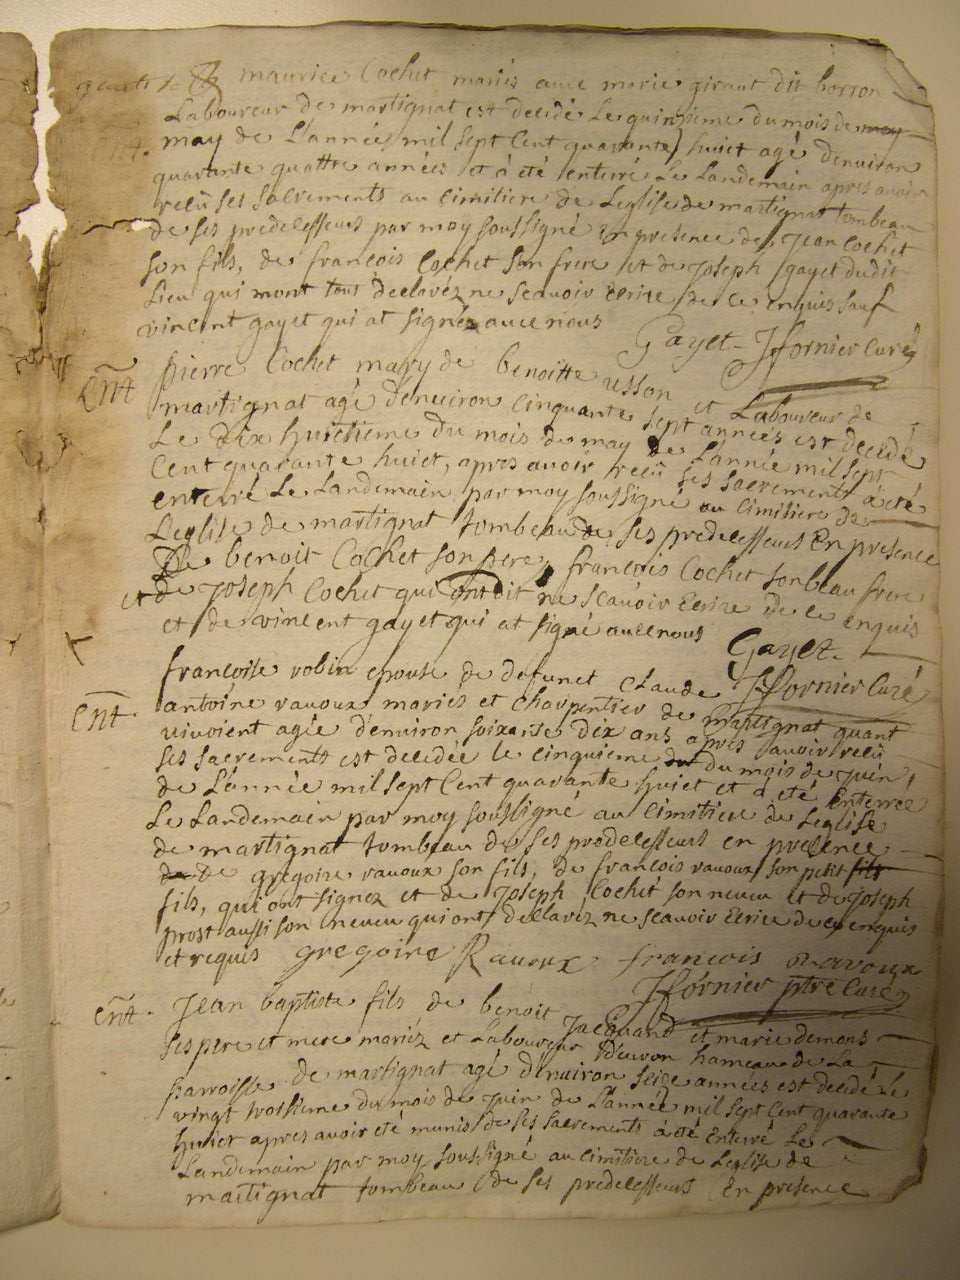 maurice Cochet mariés avec marie giraut dit borron
Laboureur de martignat est decidé le quinzieme du mois de may
may de L'année mil sept Cent quarante huict agé denuiron
quarante quattre années et a été enterré Le Landemain apres avoir
reçû ses sacrements au cimitiere de Leglise de martignat tombeau
de ses predecesseurs par moy soussigné en presence de Jean Cochet
son fils, de francois Cochet son frere et de Joseph gayet dudit
Lieu qui mont tout declarez ne scauoir ecrire de ce enquis sauf
vincent gayet qui at signéz auec nous
Gayet - Jfornier Curé
Ent pierre Cochet mary de benoitte usson et Laboureur de
martignat agé denuiron cinquante sept années est decedé
Le Dix huictieme du mois de may de L'année mil sept
Cent quarante huict, apres avoir reçû ses sacrements a été
enterré Le Landemain par moy soussigné au cimitiere de
L'eglise de martignat tombeau de ses predecesseurs En presence
De benoit Cochet son pere, francois Cochet son beau frere
et de Joseph Cochet qui ont dit ne scauoir Ecrire de ce enquis
et de vincent gayet qui at signé auec nous
Gayet
Jfornier Curé
francoise robin epouse de defunct Claude
Ent. antoine rauoux mariés et charpentier de martignat quant
vivoient agée d'enuiron soixante dix ans apres avoir reçû
ses sacrements est decedée le cinquieme du du mois de juin
de L'année mil sept Cent quarante huict et a été Enterrée
Le Landemain par moy soussigné au cimitiere de Leglise
de martignat tombeau de ses predecesseurs en presence
de De gregoire rauoux son fils, de francois rauoux son petit fils
fils, qui ont signez et de Joseph Cochet son neueu et de Joseph
prost aussi son neueu qui ont declarez ne scauoir Ecrire de ce enquis
et requis gregoire Rauoux francois Ravoux
Jfornier ptre Curé
Ent. Jean baptiste fils de benoit Jacquand et marie demons
ses pere et mere mariéz et Laboureur hameau de La
parroisse de martignat agé d'enuiron seize années est decedé Le
vingt troisieme du mois de juin de L'année mil sept Cent quarante
huict apres avoir été munis de ses sacrements a été Enterré Le
Landemain par moy soussigné au cimitiere de Leglise de
martignat tombeau de ses predecesseurs En presence